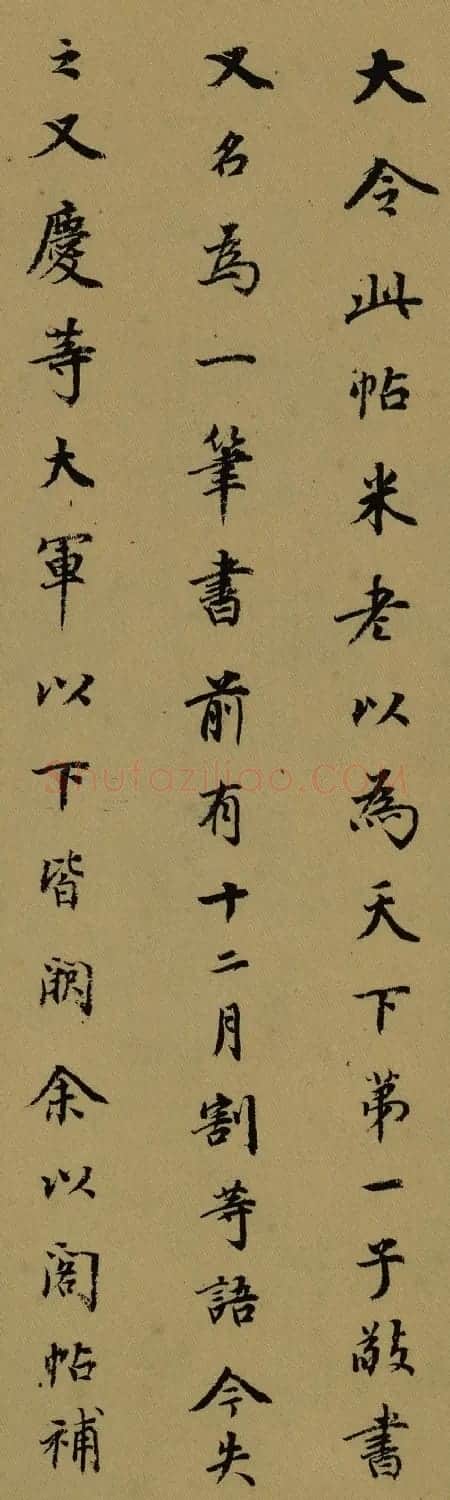 大令此帖米老以為天下第一子敬書
又名為一筆書前有十二月割等語今失
之又慶等大軍以下皆闕余以閣帖補
shufaziliao.com